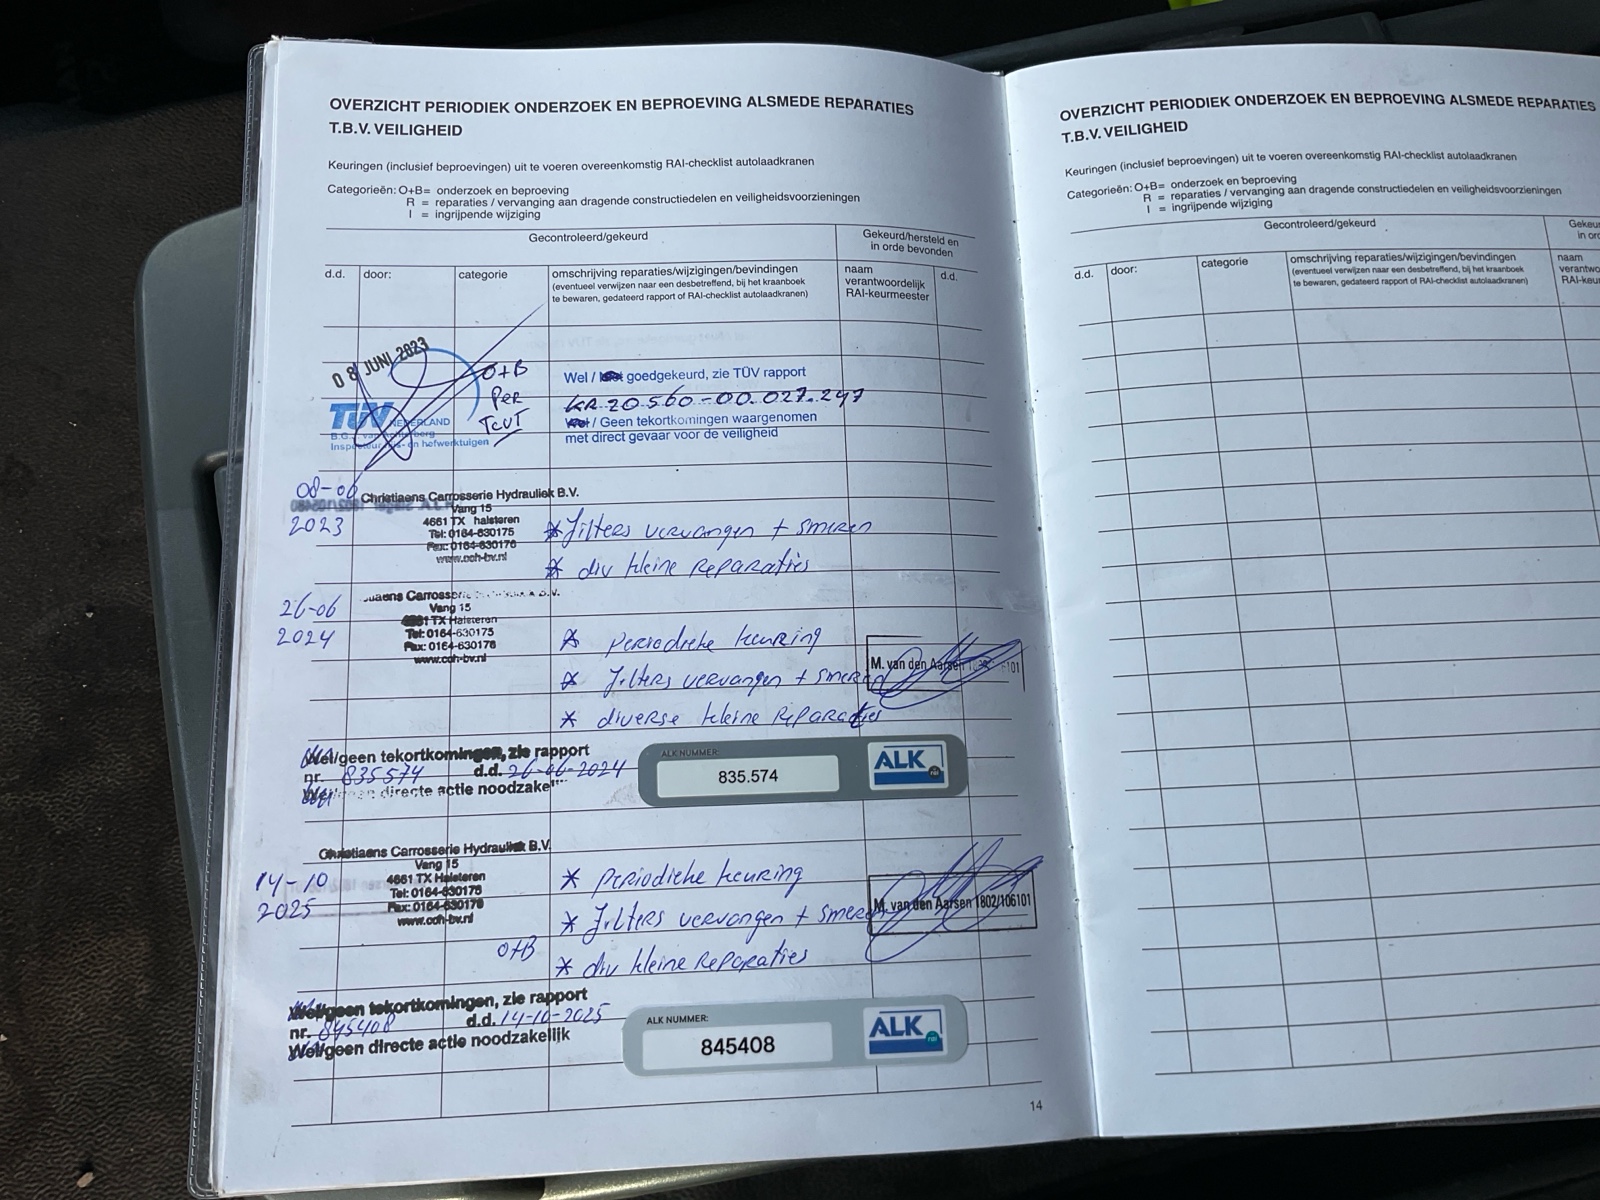 OVERZICHT PERIODIEK ONDERZOEK EN BEPROEVING ALSMEDE REPARATIES
T.B.V. VEILIGHEID
Keuringen (inclusief beproevingen) uit te voeren overeenkomstig RAI-checklist autolaadkranen
Categorieën: O+B= onderzoek en beproeving
R = reparaties / vervanging aan dragende constructiedelen en veiligheidsvoorzieningen
I = ingrijpende wijziging
Gecontroleerd/gekeurd
Gekeurd/hersteld en
in orde bevonden
d.d.
door:
categorie
omschrijving reparaties/wijzigingen/bevindingen
(eventueel verwijzen naar een desbetreffend, bij het kraanboek
te bewaren, gedateerd rapport of RAI-checklist autolaadkranen)
naam
verantwoordelijk
RAI-keurmeester
d.d.
08 JUNI 2023
TÜV NEDERLAND
B.G.
en hefwerktuigen
O+B
PER
TCVT
Wel / goedgekeurd, zie TÜV rapport
KR 20560-00.027.247
/ Geen tekortkomingen waargenomen
met direct gevaar voor de veiligheid
08-06
2023
Christiaens Carrosserie Hydrauliek B.V.
Vang 15
4661 TX halsteren
Tel: 0164-630175
Fax: 0164-630176
www.cch-bv.nl
* Filters vervangen + smeren
* div kleine Reparaties
26-06
2024
Carrosserie B.V.
Vang 15
4661 TX Halsteren
Tel: 0164-630175
Fax: 0164-630176
www.cch-bv.nl
* periodieke keuring
* Filters vervangen + smeren
* diverse kleine Reparaties
M. van den Aarsen
Wel/geen tekortkomingen, zie rapport
nr. 835574 d.d. 26-06-2024
directe actie noodzakelijk
ALK NUMMER:
835.574
ALK
rai
14-10
2025
Christiaens Carrosserie Hydrauliek B.V.
Vang 15
4661 TX Halsteren
Tel: 0164-630175
Fax: 0164-630176
www.cch-bv.nl
O+B
* periodieke keuring
* Filters vervangen + smeren
* div kleine Reparaties
M. van den Aarsen 1802/106101
Wel/geen tekortkomingen, zie rapport
nr. 845408 d.d. 14-10-2025
Wel/geen directe actie noodzakelijk
ALK NUMMER:
845408
ALK
rai
14
OVERZICHT PERIODIEK ONDERZOEK EN BEPROEVING ALSMEDE REPARATIES
T.B.V. VEILIGHEID
Keuringen (inclusief beproevingen) uit te voeren overeenkomstig RAI-checklist autolaadkranen
Categorieën: O+B= onderzoek en beproeving
R = reparaties / vervanging aan dragende constructiedelen en veiligheidsvoorzieningen
I = ingrijpende wijziging
Gecontroleerd/gekeurd
Gekeu
in ord
d.d.
door:
categorie
omschrijving reparaties/wijzigingen/bevindingen
(eventueel verwijzen naar een desbetreffend, bij het kraanboek
te bewaren, gedateerd rapport of RAI-checklist autolaadkranen)
naam
verantwo
RAI-keu